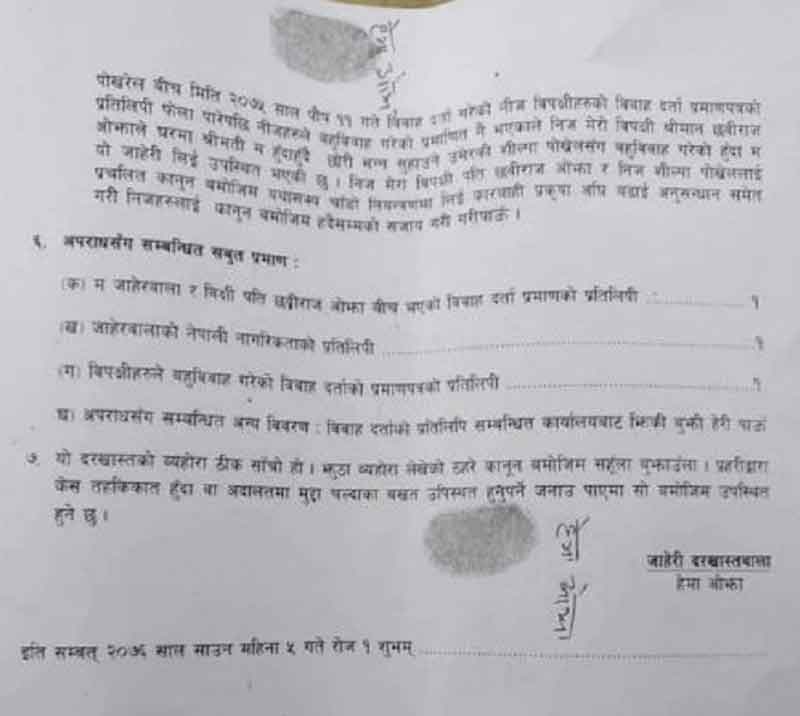 हेमा ओझा
पोखरेल बीच मिति २०७५ साल पौष ११ गते विवाह दर्ता गरेको नीज विपक्षीहरुको विवाह दर्ता प्रमाणपत्रको
प्रतिलिपी फेला पारेपछि नीजहरुले बहुविवाह गरेको प्रमाणित नै भएकाले निज मेरो विपक्षी श्रीमान छवीराज
ओझाले घरमा श्रीमती म हुँदाहुँदै छोरी भन्न सुहाउने उमेरकी शील्पा पोखेलसंग बहुविवाह गरेको हुँदा म
यो जाहेरी लिई उपस्थित भएकी छु । निज मेरा विपक्षी पति छवीराज ओझा र निज शील्पा पोखेललाई
प्रचलित कानुन बमोजिम यथासक्य चाँडो नियन्त्रणमा लिई कारवाही प्रकृया अघि बढाई अनुसन्धान समेत
गरी निजहरुलाई कानून बमोजिम हदैसम्मको सजाय गरी गरीपाऊँ ।
६. अपराधसंग सम्बन्धित सबुत प्रमाण :
(क) म जाहेरवाला र विक्षी पति छवीराज ओझा बीच भएको विवाह दर्ता प्रमाणको प्रतिलिपी .................... १
(ख) जाहेरवालाको नेपाली नागरिकताको प्रतिलिपी .................... १
(ग) विपक्षीहरुले बहुविवाह गरेको विवाह दर्ताको प्रमाणपत्रको प्रतिलिपी .................... १
(घ) अपराधसंग सम्बन्धित अन्य विवरण : विवाह दर्ताको प्रतिलिपि सम्बन्धित कार्यालयबाट झिकी बुझी हेरी पाऊँ
७. यो दरखास्तको व्यहोरा ठीक साँचो हो । झुठा व्यहोरा लेखेको ठहरे कानून बमोजिम सहूँला बुझाउँला । प्रहरीद्वारा
केस तहकिकात हुँदा वा अदालतमा मुद्दा चल्दाका बखत उपस्थित हुनुपर्ने जनाउ पाएमा सो बमोजिम उपस्थित
हुने छु ।
हेमा ओझा
जाहेरी दरखास्तवाला
हेमा ओझा
इति सम्बत् २०७६ साल साउन महिना ५ गते रोज १ शुभम् ....................